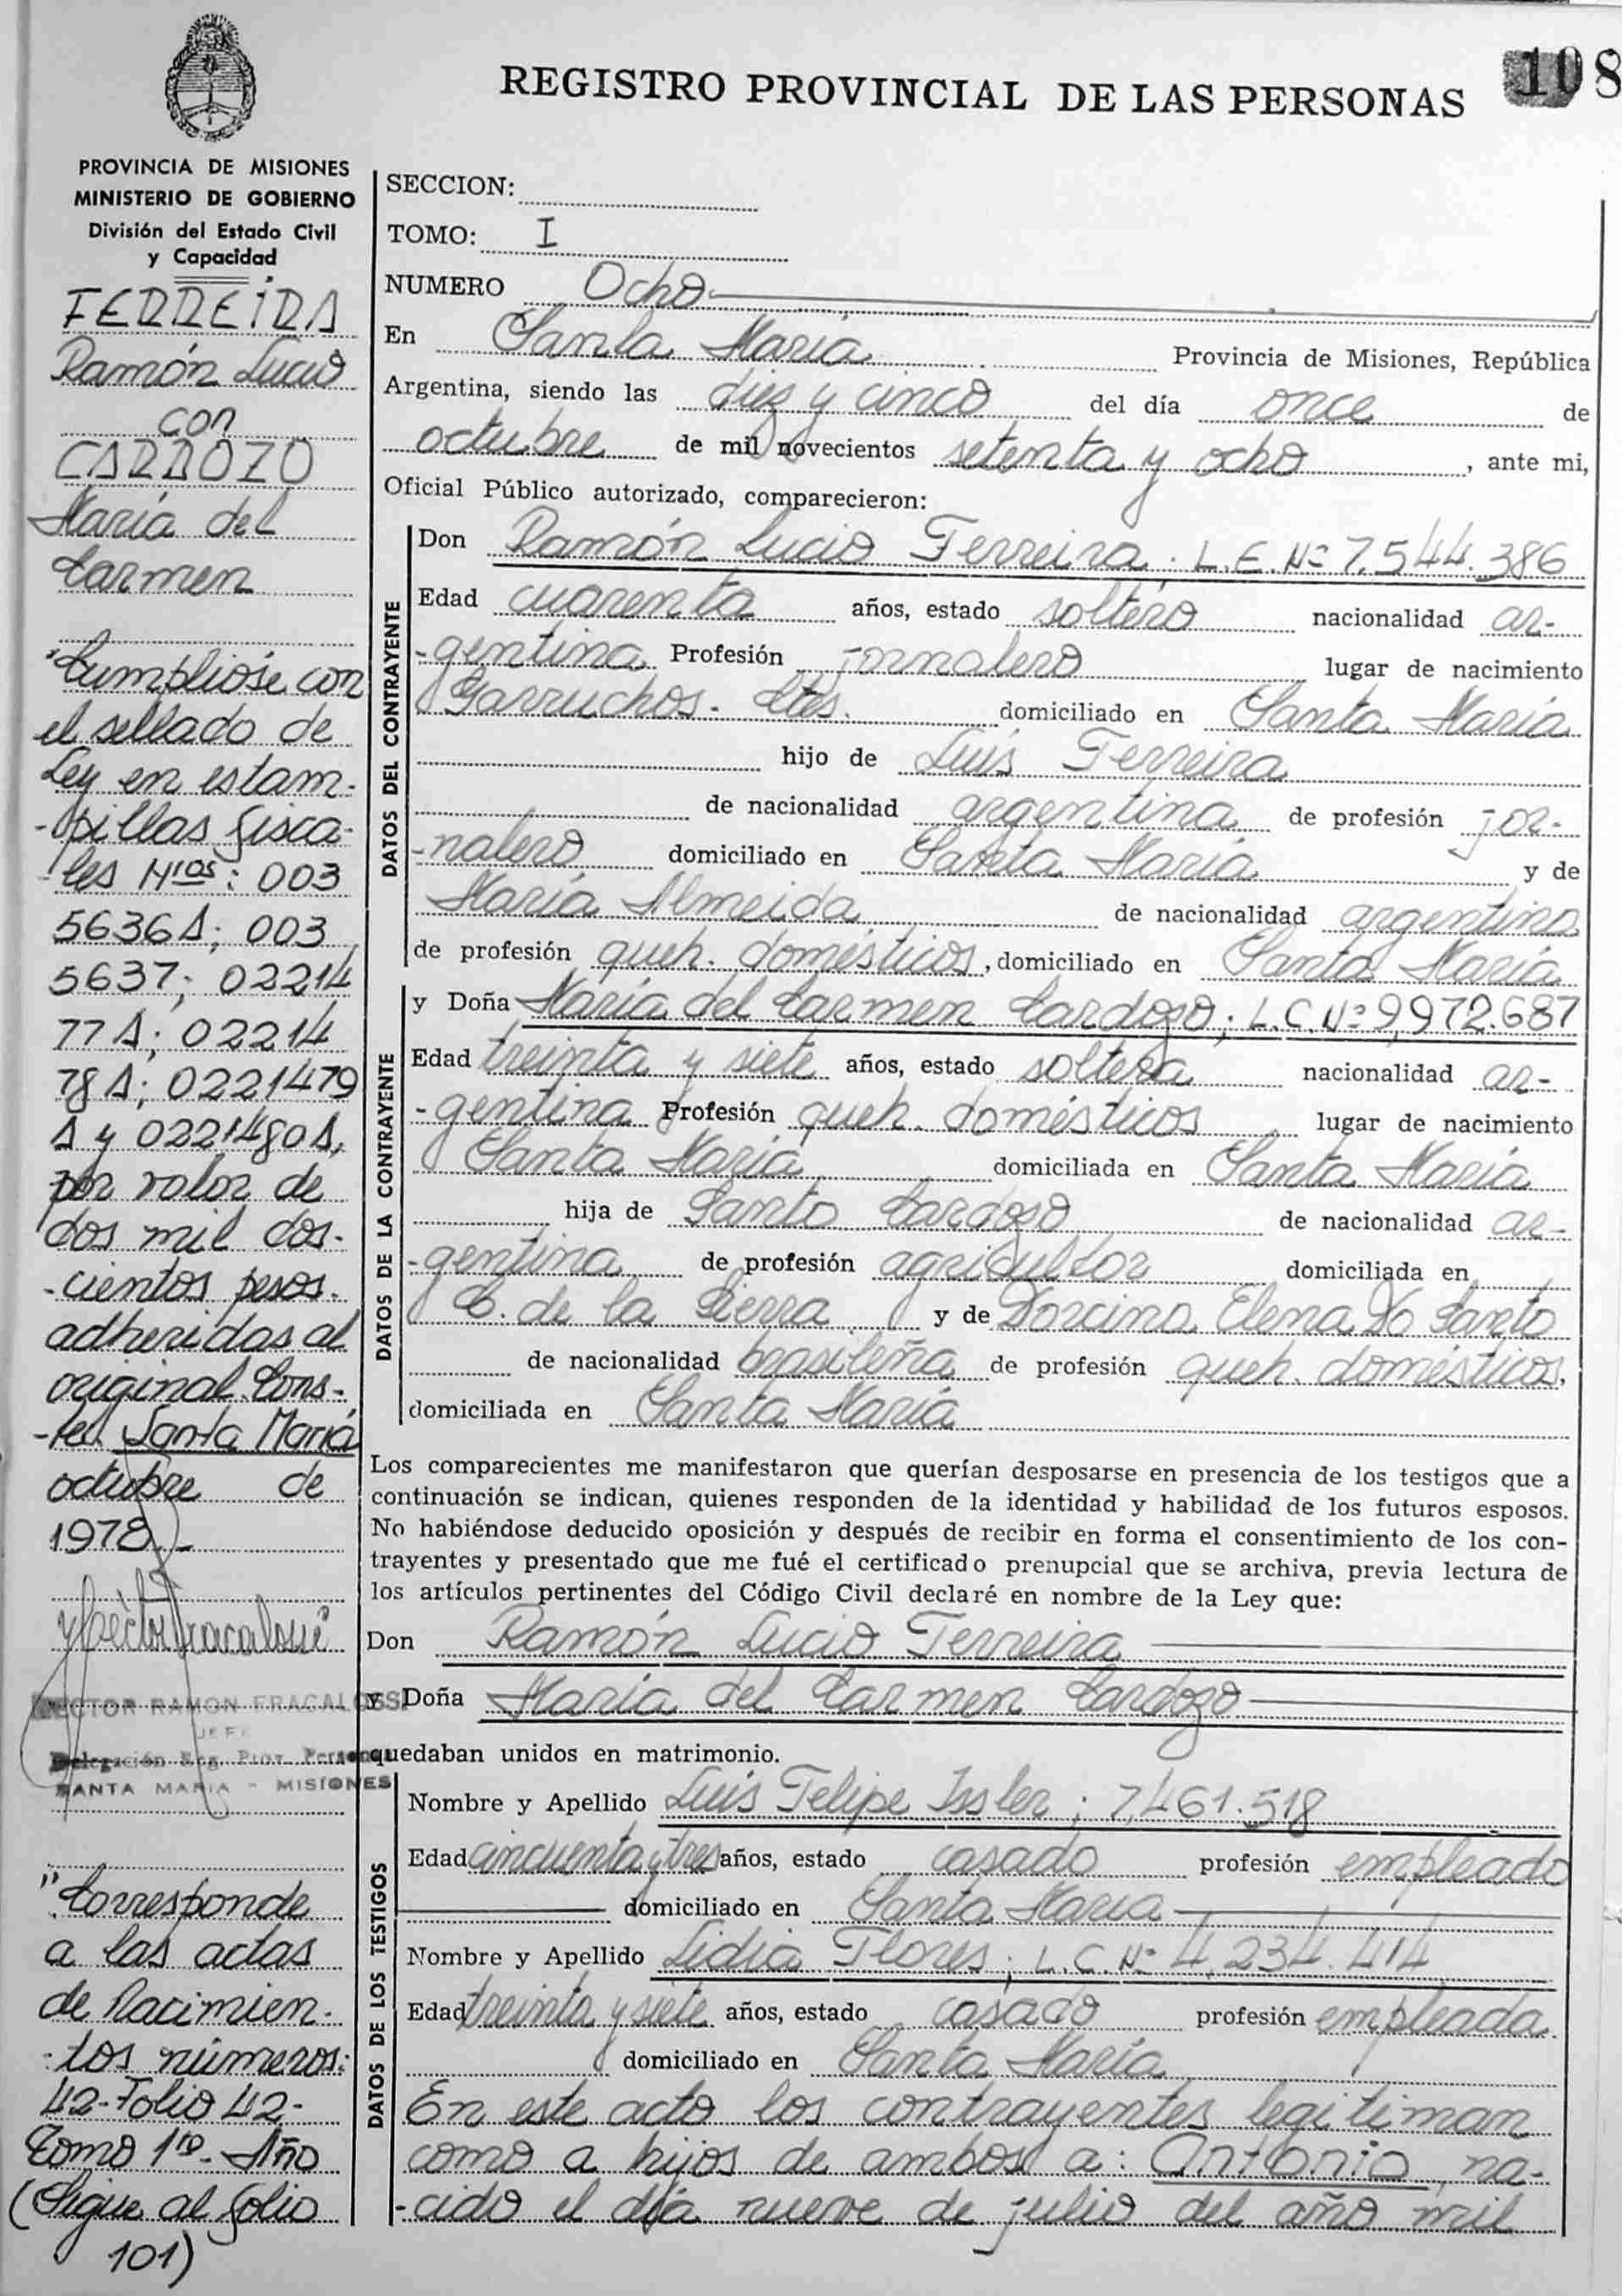 REGISTRO PROVINCIAL DE LAS PERSONAS 108
PROVINCIA DE MISIONES
MINISTERIO DE GOBIERNO
División del Estado Civil
y Capacidad
FERREIRA
Ramón Lucio
con
CARDOZO
María del
Carmen
"Cumplióse con
el sellado de
Ley en estam-
-pillas fisca-
les Nros: 003
5636A; 003
5637; 02214
77A; 02214
78A; 0221479
A y 0221480A,
por valor de
dos mil dos-
-cientos pesos.
adheridas al
original. Cons-
-te. Santa María
octubre de
1978.-
HECTOR RAMON FRACALOSSI
JEFE
Delegación Reg. Prov. Personas
SANTA MARIA - MISIONES
"Corresponde
a las actas
de Nacimien-
-tos números:
42-Folio 42-
Tomo 1ro- Año
(Sigue al folio
101)
SECCION:
TOMO: I
NUMERO Ocho
En Santa María Provincia de Misiones, República
Argentina, siendo las diez y cinco del día once de
octubre de mil novecientos setenta y ocho, ante mi,
Oficial Público autorizado, comparecieron:
DATOS DEL CONTRAYENTE
Don Ramón Lucio Ferreira; L.E. Nº 7.544.386
Edad cuarenta años, estado soltero nacionalidad ar-
-gentina Profesión jornalero lugar de nacimiento
Garruchos- Ctes. domiciliado en Santa María
hijo de Luis Ferreira
de nacionalidad argentina de profesión jor-
-nalero domiciliado en Santa María y de
María Almeida de nacionalidad argentina
de profesión queh. domésticos, domiciliado en Santa María
DATOS DE LA CONTRAYENTE
y Doña María del Carmen Cardozo; L.C. Nº 9,972.687
Edad treinta y siete años, estado soltera nacionalidad ar-
-gentina Profesión queh. domésticos lugar de nacimiento
Santa María domiciliada en Santa María
hija de Santo Cardozo de nacionalidad ar-
-gentina de profesión agricultor domiciliada en
C. de la Sierra y de Dorcina Elena Do Santo
de nacionalidad brasileña de profesión queh. domésticos,
domiciliada en Santa María
Los comparecientes me manifestaron que querían desposarse en presencia de los testigos que a
continuación se indican, quienes responden de la identidad y habilidad de los futuros esposos.
No habiéndose deducido oposición y después de recibir en forma el consentimiento de los con-
trayentes y presentado que me fué el certificado prenupcial que se archiva, previa lectura de
los artículos pertinentes del Código Civil declaré en nombre de la Ley que:
Don Ramón Lucio Ferreira
y Doña María del Carmen Cardozo
quedaban unidos en matrimonio.
DATOS DE LOS TESTIGOS
Nombre y Apellido Luis Felipe Issler; 7,461.518
Edad cincuenta y tres años, estado casado profesión empleado
domiciliado en Santa María
Nombre y Apellido Lidia Flores; L.C. Nº 4,234.414
Edad treinta y siete años, estado casado profesión empleada
domiciliado en Santa María
En este acto los contrayentes legitiman
como a hijos de ambos a: Antonio, na-
-cido el día nueve de julio del año mil